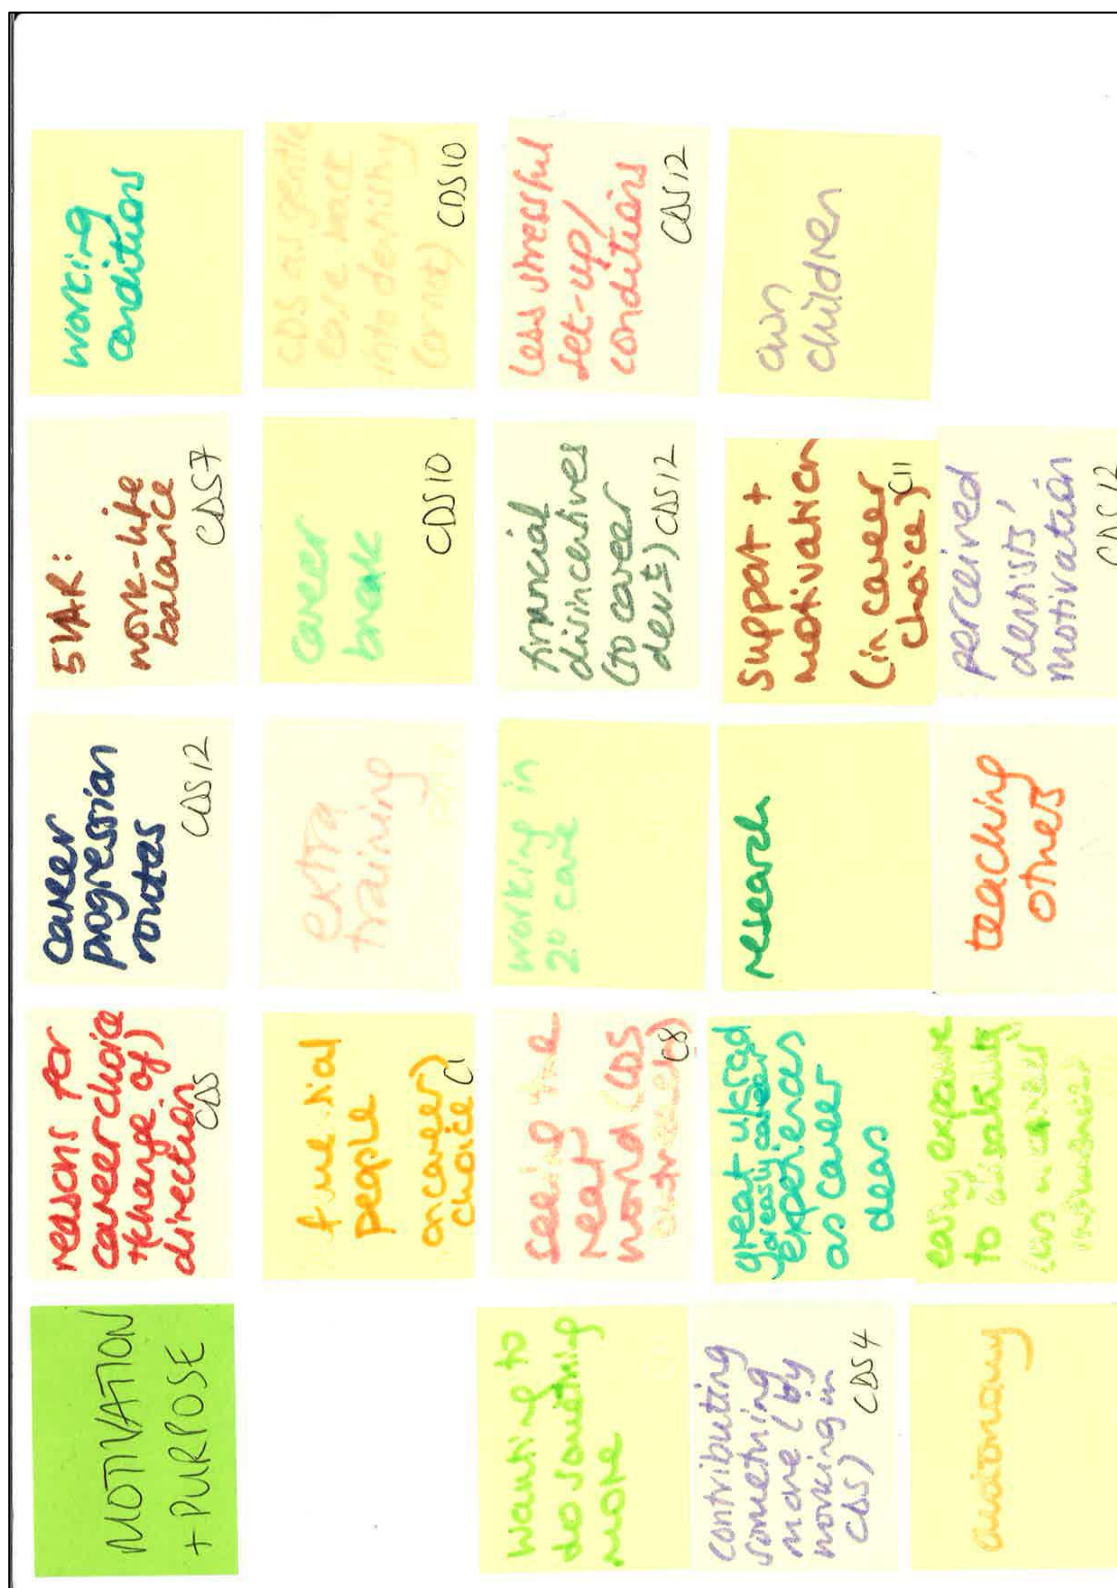 MOTIVATION
+ PURPOSE
reasons for
career choice
(change of)
direction
CDS
career
progression
routes
CDS12
5YAR:
work-life
balance
CDS7
working
conditions
people
on career)
choice
C1
extra
training
career
break
CDS10
CDS as gentle
into dentistry
(or not)
CDS10
wanting to
do something
more
seeing the
real
world (CDS
outreach)
C8
working in
2° care
financial
disincentives
(to career
devt) CDS12
less stressful
set-up/
conditions
CDS12
contributing
something
more (by
working in
CDS)
CDS4
great u/grad
experiences
as career
ideas
research
support +
motivation
(in career
choice)
C11
own
children
autonomy
early exposure
to disability
influencer
teaching
others
perceived
dentists'
motivation
CDS12